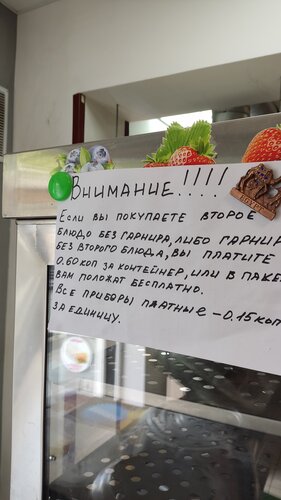 Внимание!!!!
Если вы покупаете второе
блюдо без гарнира, либо гарнир
без второго блюда, вы платите
0.60 коп за контейнер, или в паке
вам положат бесплатно.
Все приборы платные – 0.15 коп
за единицу.